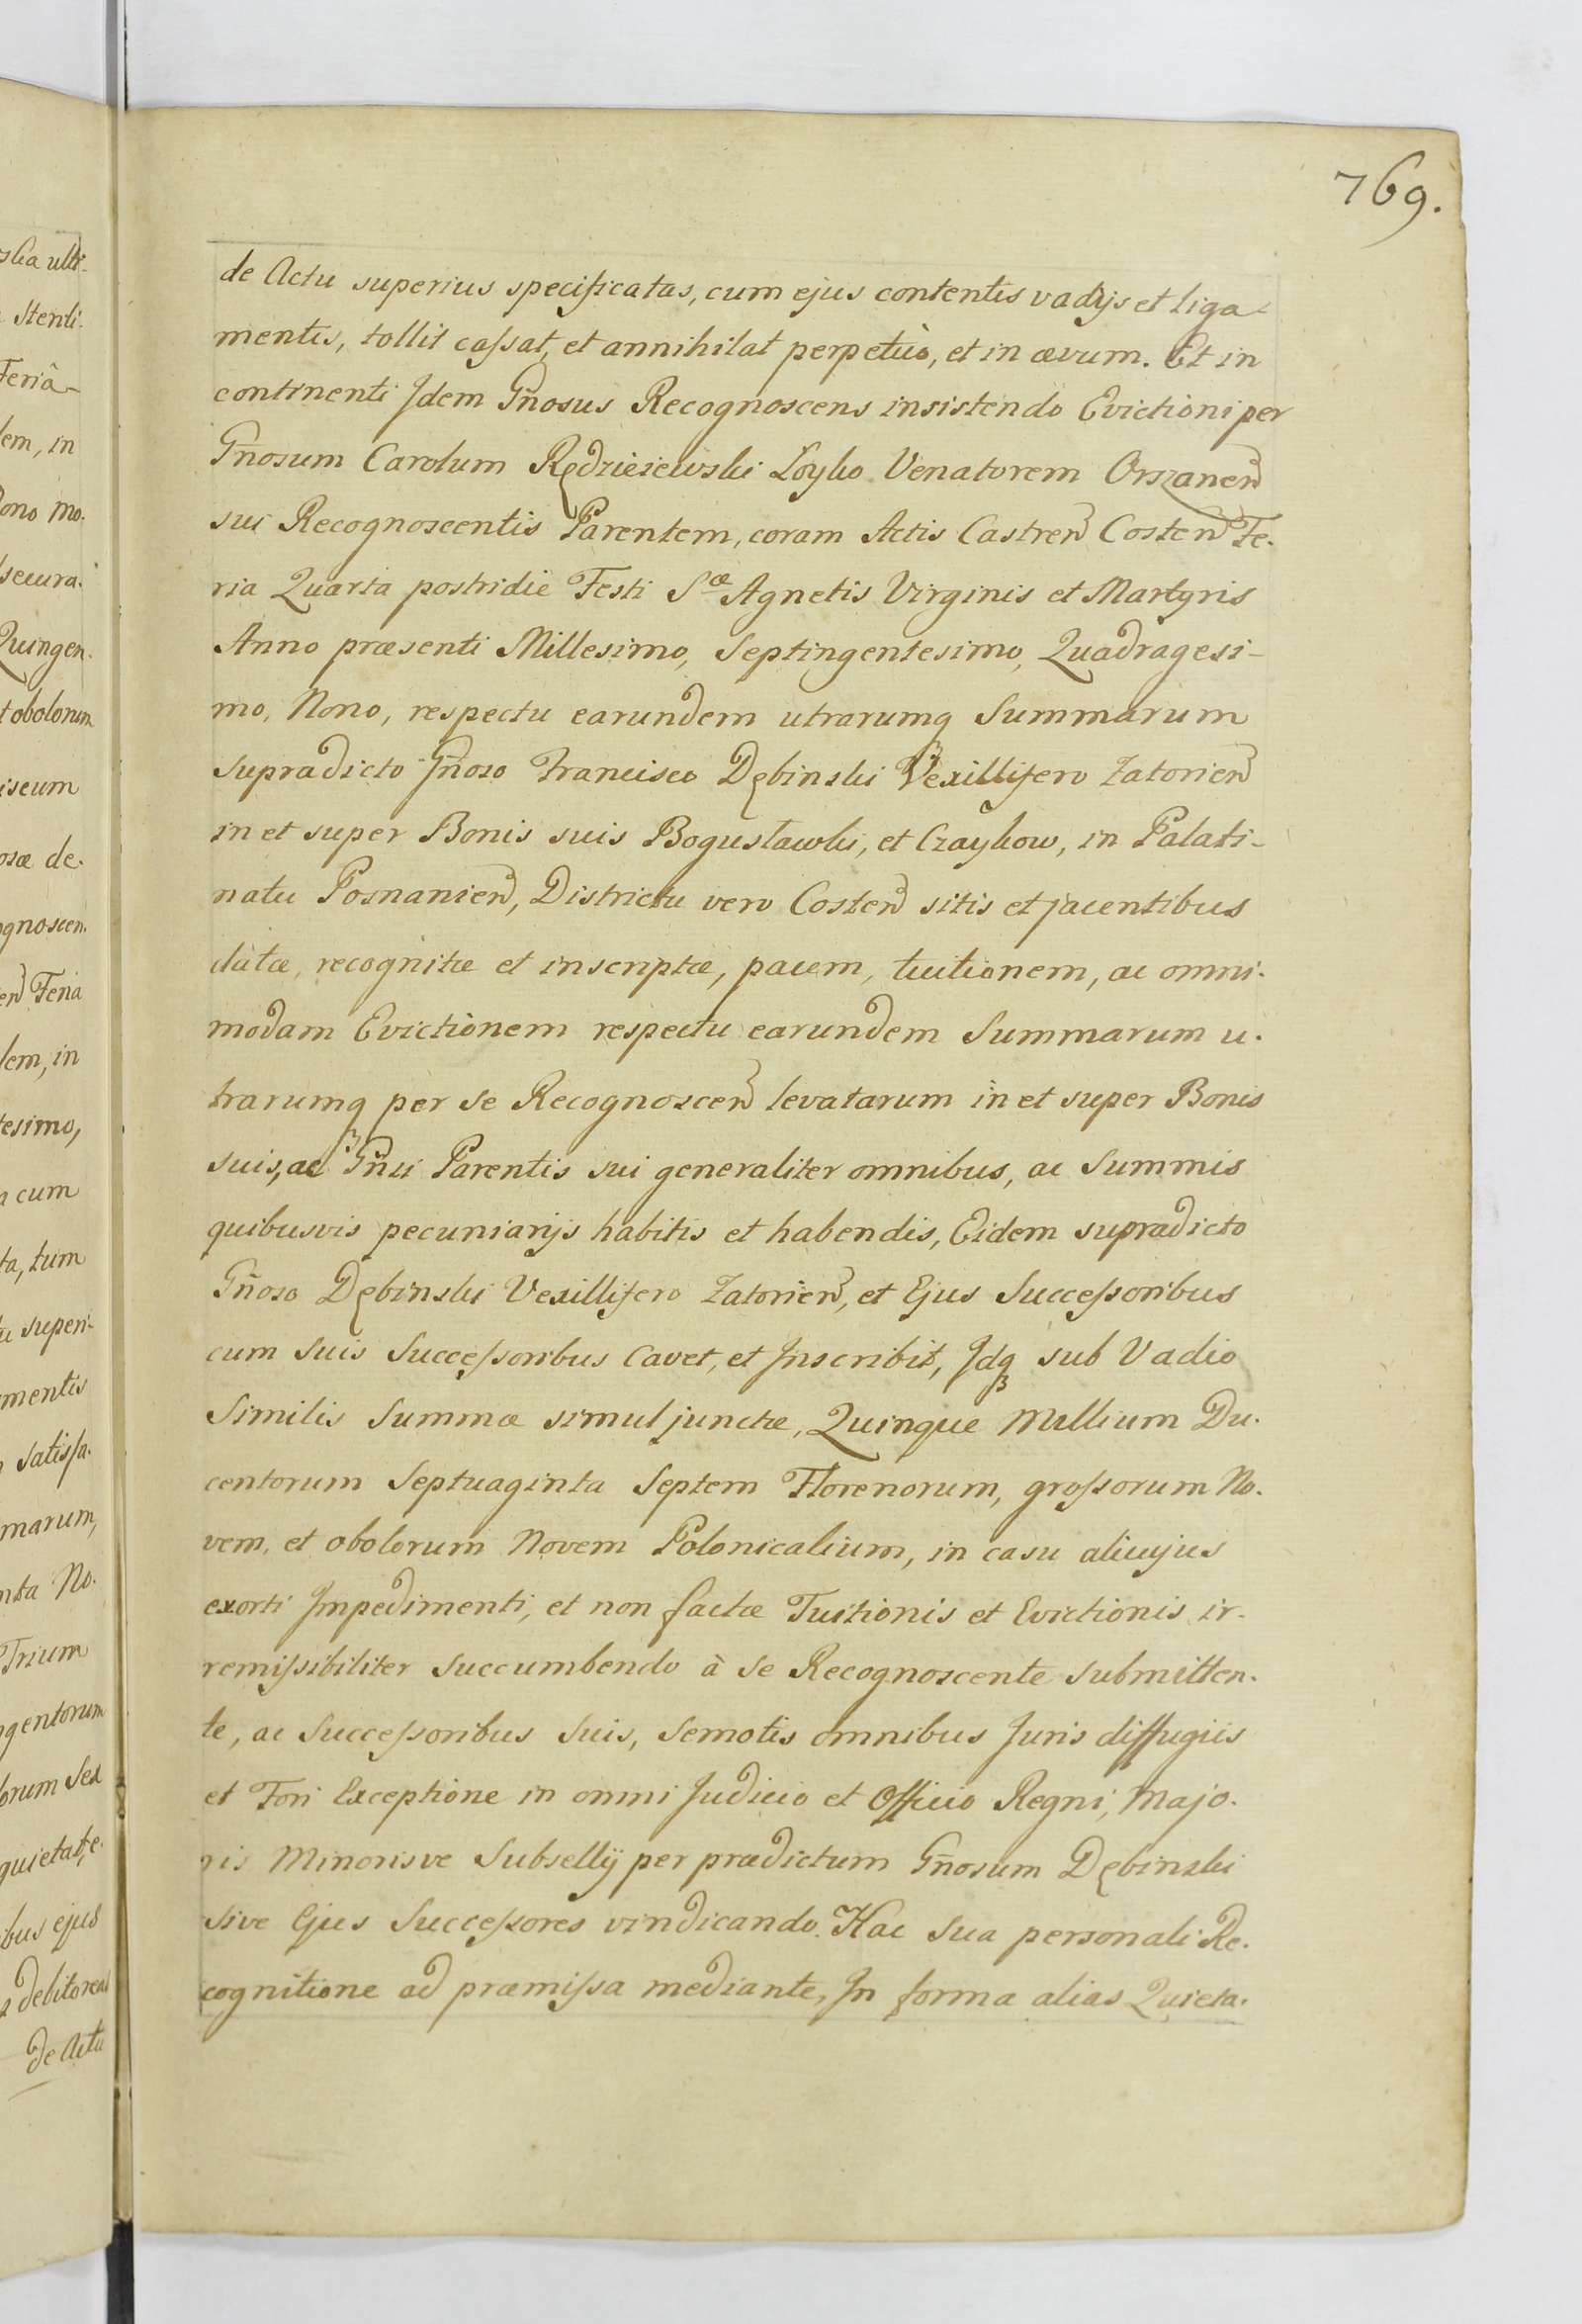 769.
de Actu superius specificatas, cum ejus contentis vadijs et liga-
mentis, tollit cassat, et annihilat perpetuò, et in ævum. Et in
continenti Jdem Gñosus Recognoscens insistendo Evictioni per
Gñosum Carolum Rędzieiewski Loyko Venatorem Orszanen̄
sui Recognoscentis Parentem, coram Actis Castren̄ Costen̄ Fe-
ria Quarta postridie Festi Sæ Agnetis Virginis et Martyris
Anno præsenti Millesimo, Septingentesimo, Quadragesi-
mo, Nono, respectu earundem utrarumq Summarum
supradicto Gñoso Francisco Dębinski Vexillifero Zatorien̄
in et super Bonis suis Bogusławki, et Czaykow, in Palati-
natu Posnanien̄, Districtu vero Costen̄ sitis et jacentibus
datæ, recognitæ et inscriptæ, pacem, tuitionem, ac omni-
modam Evictionem respectu earundem Summarum u-
trarumq per se Recognoscen̄ levatarum in et super Bonis
suis, ac Gñsi Parentis sui generaliter omnibus, ac Summis
quibusvis pecuniarijs habitis et habendis, Eidem supradicto
Gñoso Dębinski Vexillifero Zatorien̄, et Ejus Successoribus
cum suis Successoribus Cavet, et Jnscribit, Jdq sub Vadio
Similis Summæ simul junctæ, Quinque Millium Du-
centorum Septuaginta Septem Florenorum, grossorum No-
vem, et obolorum Novem Polonicalium, in casu alicujus
exorti Jmpedimenti, et non factæ Tuitionis et Evictionis ir-
remissibiliter succumbendo à se Recognoscente submitten-
te, ac Successoribus suis, Semotis omnibus Juris diffugiis
et Fori Exceptione in omni Judicio et Officio Regni, Majo-
ris Minorisve Subsellij per prædictum Gñosum Dębinski
sive Ejus Successores vindicando. Hac sua personali Re-
cognitione ad præmissa mediante, Jn forma alias Quieta-